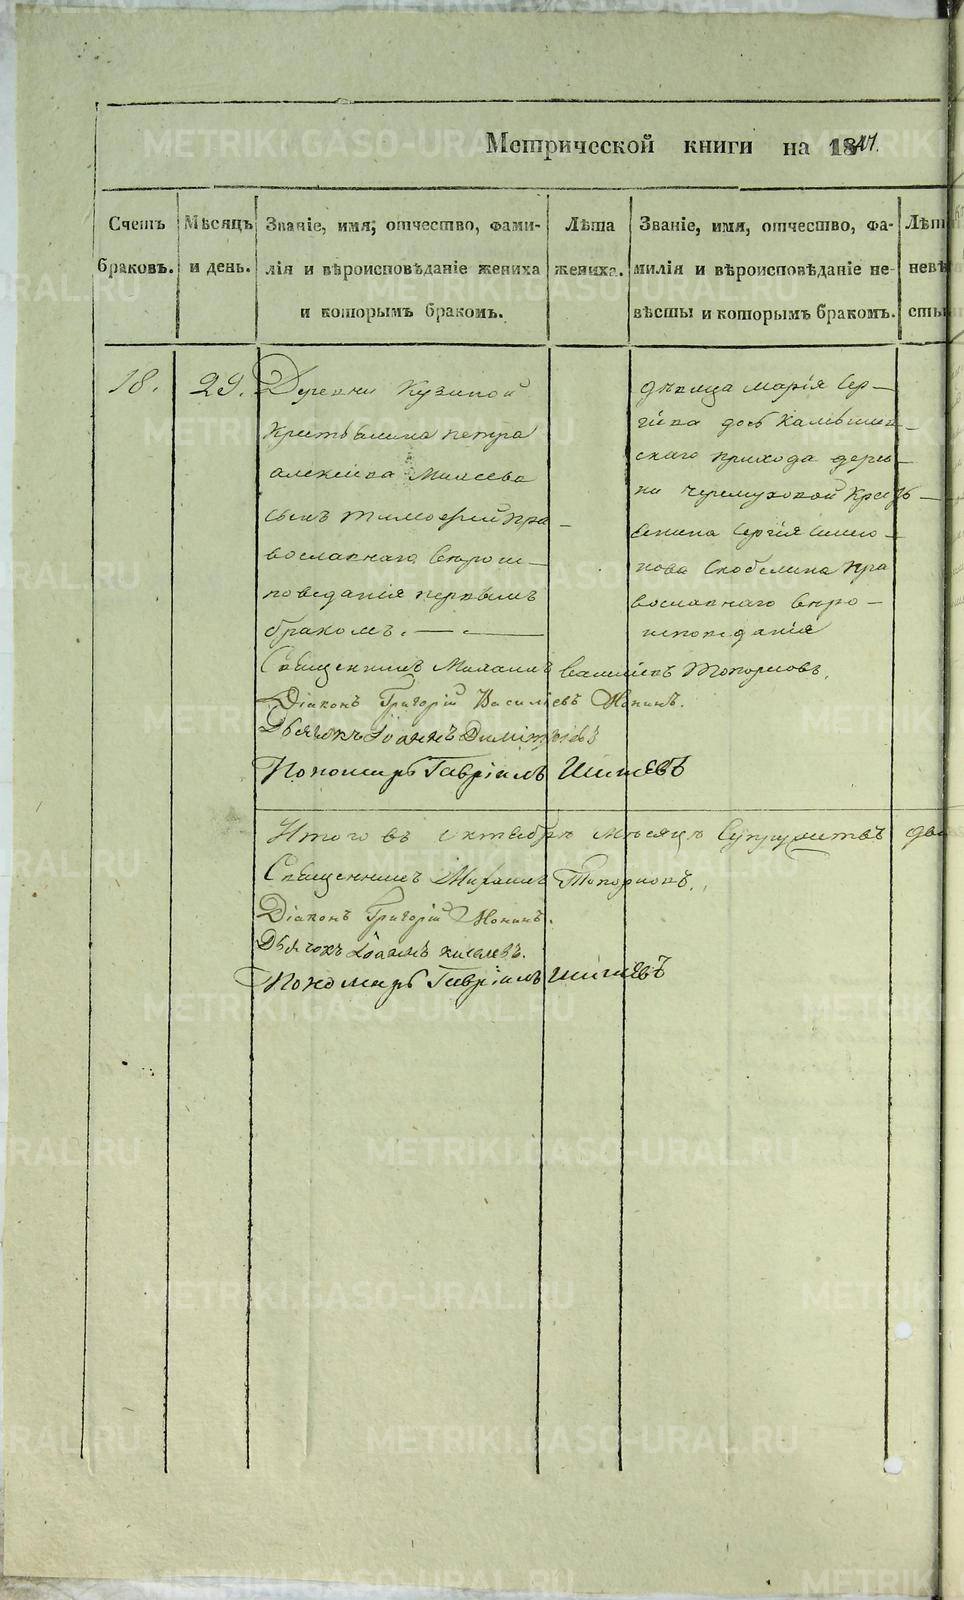 Метрической книги на 1847.
Счетъ браковъ.
Мѣсяцъ и день.
Званіе, имя, отчество, фами-
лія и вѣроисповѣданіе жениха
и которымъ бракомъ.
Лѣта жениха.
Званіе, имя, отчество, фа-
милія и вѣроисповѣданіе не-
вѣсты и которымъ бракомъ.
18.
29.
Деревни Кузиной
Крестьянина Петра
Алексѣева
сынъ Тимофей пра-
вославнаго вѣроис-
поведанія первымъ
бракомъ.
дѣвица Марія Сер-
гіева дочь
скаго прихода дерев-
ни Черемуховой Кресть-
янина Сергія Симео-
нова Скобелина пра
вославнаго вѣро-
исповѣданія
Священникъ Михаилъ Топорковъ.
Діаконъ Григорій Васильевъ
Дьячокъ Іоаннъ
Пономарь Гавріилъ
Итого въ Октябрѣ мѣсяцѣ Супружествъ
Священникъ Михаилъ Топорковъ.
Діаконъ Григорій
Дьячокъ Іоаннъ Киселевъ.
Пономарь Гавріилъ
METRIKI.GASO-URAL.RU